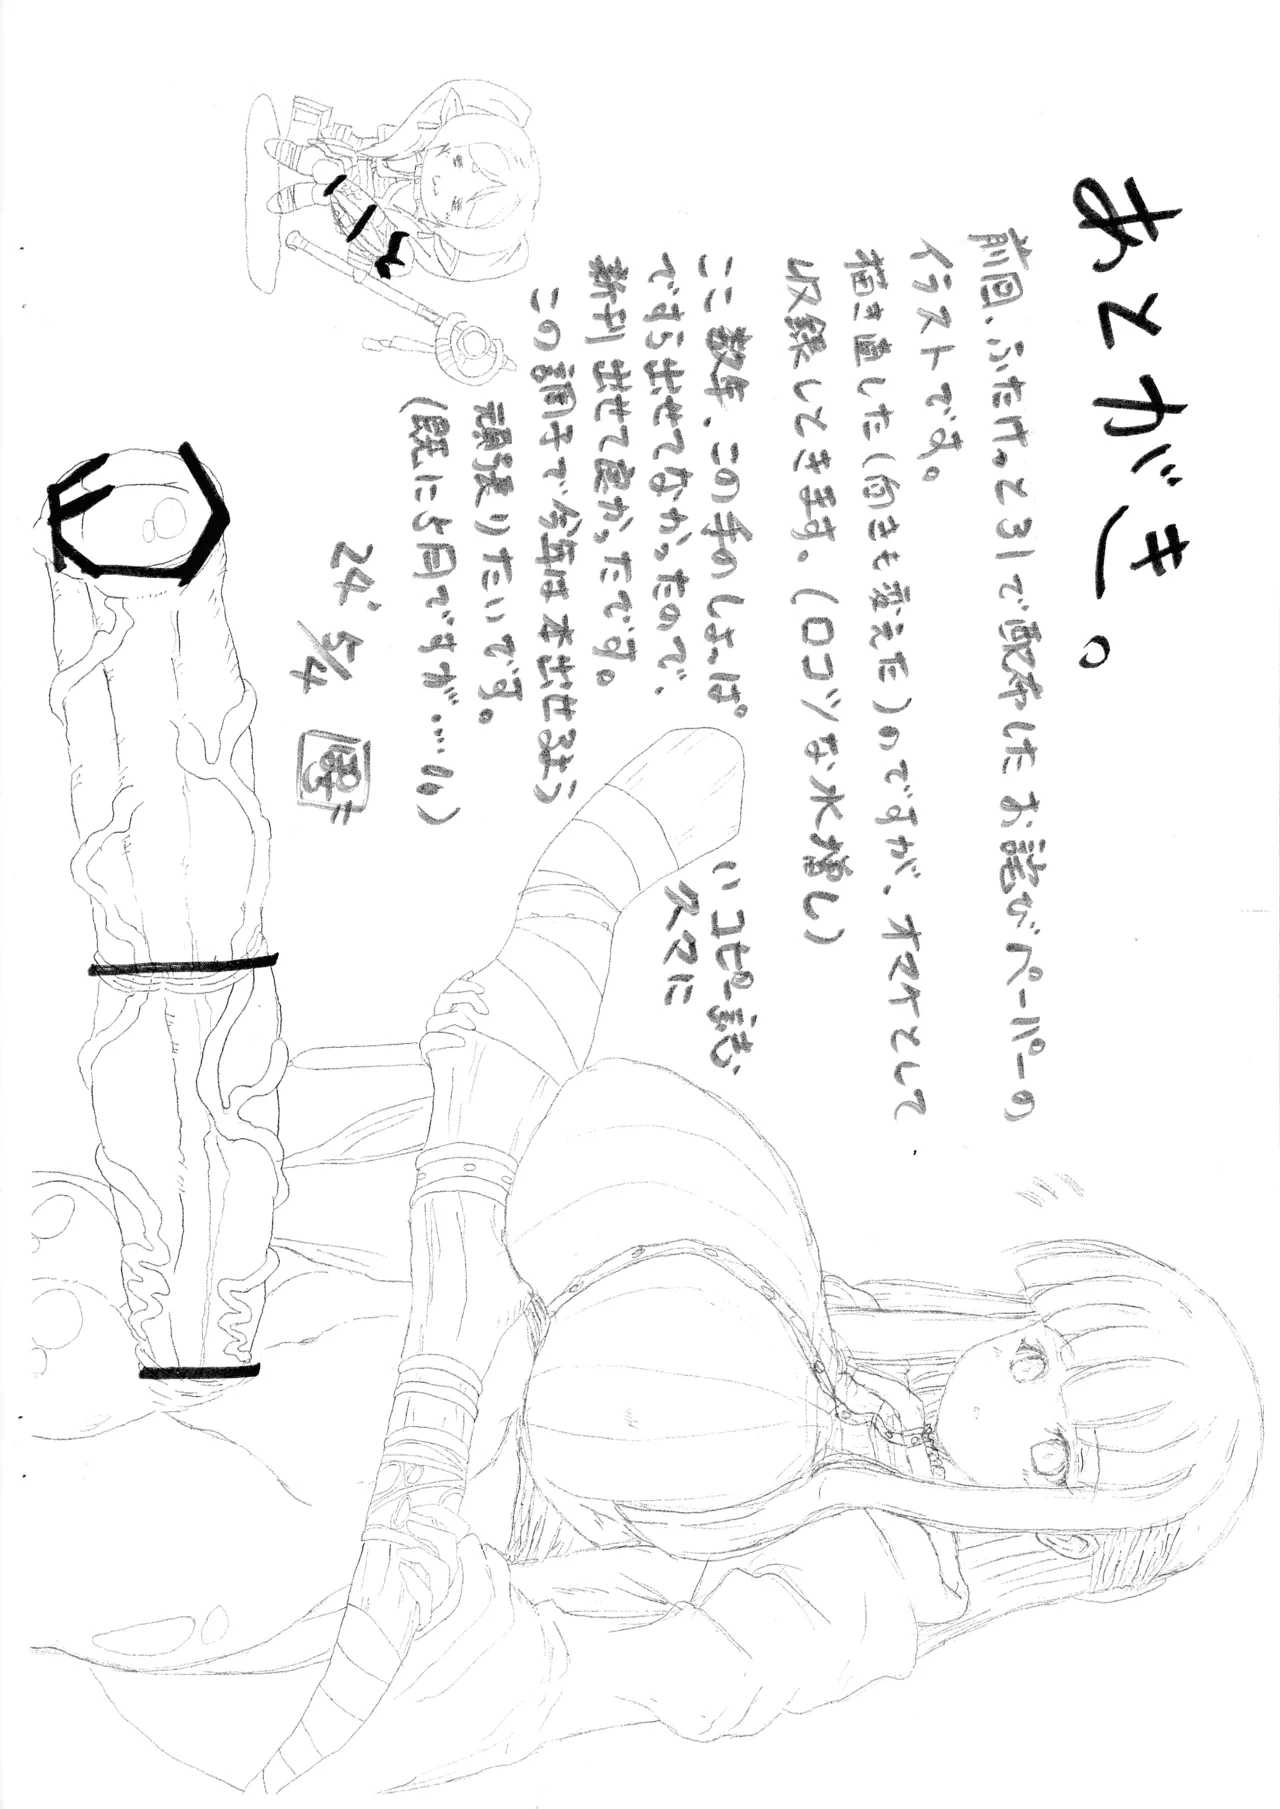 あとがき。
前回、ふたけっと31で配布したお詫びペーパーの
イラストです。
描き直した(向きも変えた)のですが、オマケとして
収録しときます。(ロコツな水増し)
ここ数年、この手のしょっぱい
コピー誌も
ですら出せてなかったので、
久々に
新刊出せて良かったです。
この調子で今年は本出せるよう
頑張りたいです。
(既に5月ですが…!!)
24' 5/4